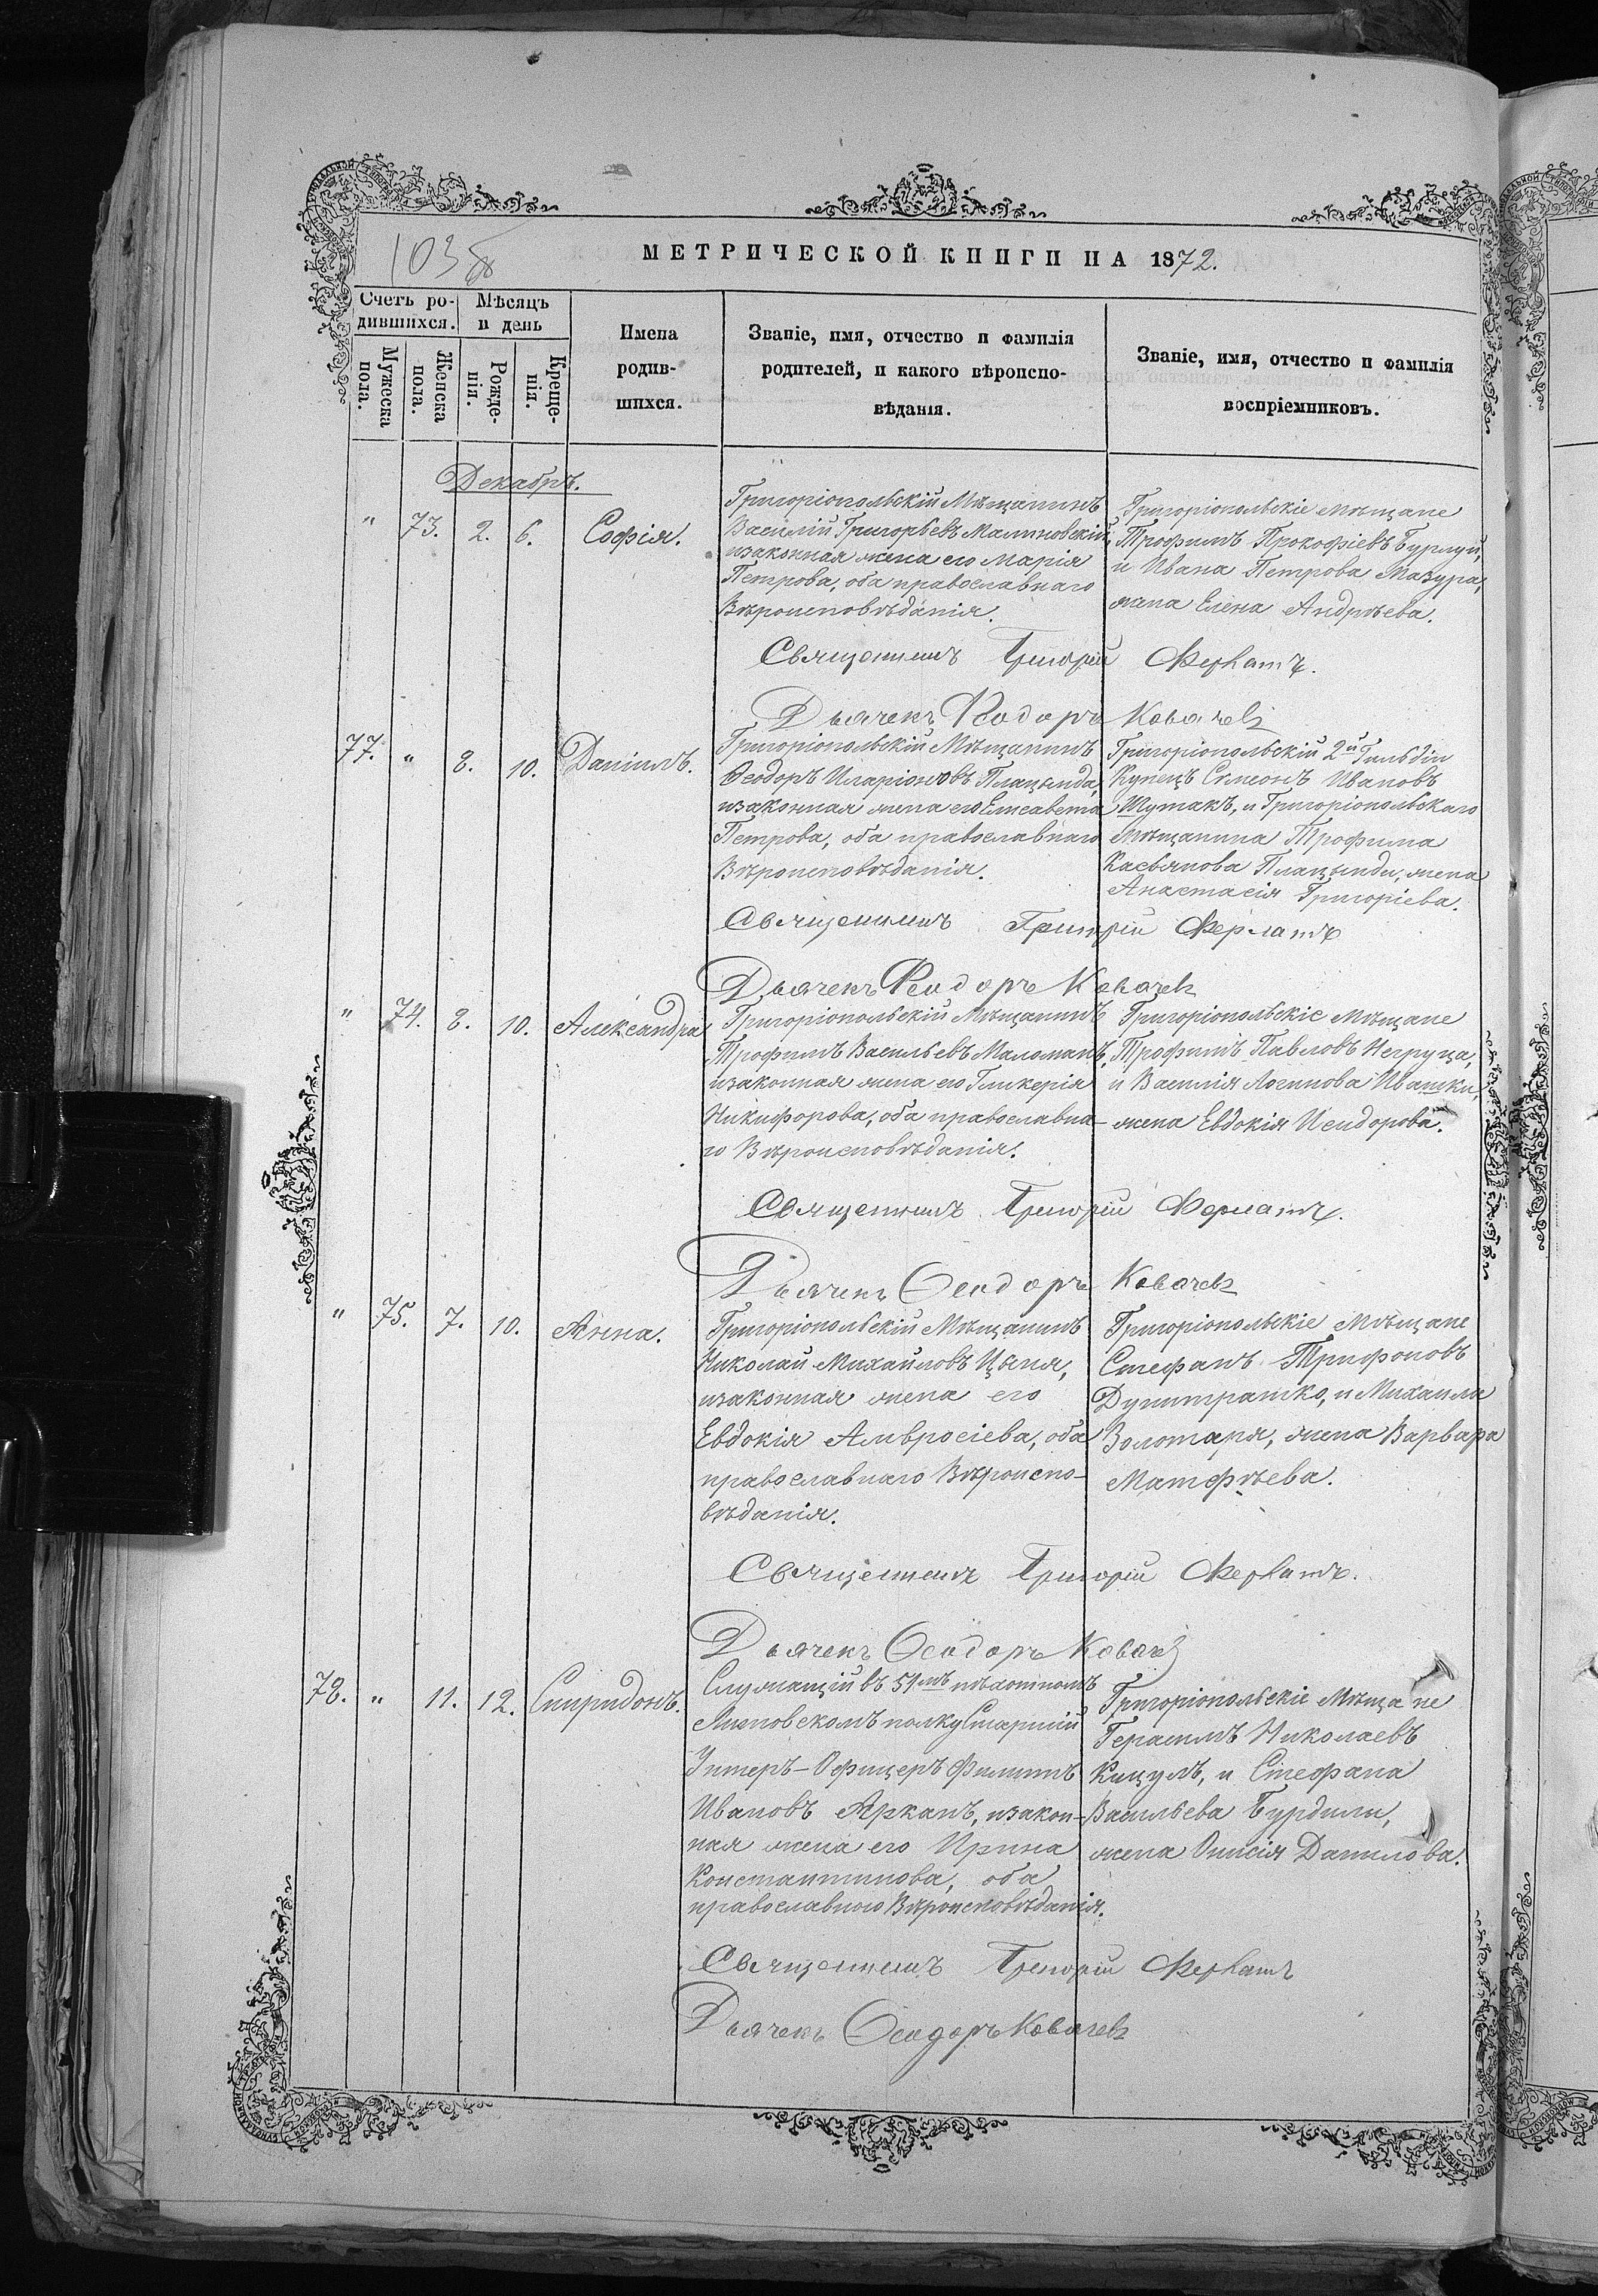 103 об
МЕТРИЧЕСКОЙ КНИГИ НА 1872.
Счетъ ро-
дившихся.
Мѣсяцъ
и день
Мужеска
пола.
Женска
пола.
Рожде-
нія.
Креще-
нія.
Имена
родив-
шихся.
Званіе, имя, отчество и фамилія
родителей, и какого вѣроиспо-
вѣданія.
Званіе, имя, отчество и фамилія
воспріемниковъ.
Декабрь.
" 73. 2. 6. Софія.
Григоріопольскій Мѣщанинъ
Василій Григорьевъ Малиновскій,
изаконная жена его Марія
Петрова, оба православнаго
Вѣроисповѣданія.
Григоріопольскіе мѣщане
Трофимъ Прокофіевъ Бурлуй,
и Ивана Петрова Мазура,
жена Елена Андрѣева.
Священникъ Григорій Ферлатъ.
Дьячекъ Ѳеодоръ Ковачевъ
77. " 8. 10. Даніилъ.
Григоріопольскій Мѣщанинъ
Ѳеодоръ Иларіоновъ Плацында,
изаконная жена его Елисавета
Петрова, оба православнаго
Вѣроисповѣданія.
Григоріопольскій 2й Гильдіи
Купецъ Симеонъ Ивановъ
Шутакъ, и Григоріопольскаго
Мѣщанина Трофима
Касьянова Плацынды, жена
Анастасія Григоріева.
Священникъ Григорій Ферлатъ
Дьячекъ Ѳеодоръ Ковачевъ
" 74. 8. 10. Александра
Григоріопольскій Мѣщанинъ
Трофимъ Васильевъ Маломанъ,
изаконная жена его Гликерія
Никифорова, оба православна-
го Вѣроисповѣданія.
Григоріопольскіе Мѣщане
Трофимъ Павловъ Негруца,
и Василія Логинова Ивашки,
жена Евдокія Исидорова.
Священникъ Григорій Ферлатъ.
Дьячекъ Ѳеодоръ Ковачевъ
" 75. 7. 10. Анна.
Григоріопольскій Мѣщанинъ
Николай Михайловъ Цыпя,
изаконная жена его
Евдокія Амвросіева, оба
православнаго Вѣроиспо-
вѣданія.
Григоріопольскіе Мѣщане
Стефанъ Трифоновъ
Думитрашко, и Михаила
Золотаря, жена Варвара
Матфѣева.
Священникъ Григорій Ферлатъ.
Дьячекъ Ѳеодоръ Ковачевъ
78. " 11. 12. Спиридонъ.
Служащій въ 51мъ пѣхотномъ
Литовскомъ полку Старшій
Унтеръ-Офицеръ Филиппъ
Ивановъ Арканъ, изакон-
ная жена его Ирина
Константинова, оба
православнаго Вѣроисповѣданія.
Григоріопольскіе Мѣщане
Герасимъ Николаевъ
Кицулъ, и Стефана
Васильева Бурдили,
жена Онисія Данилова.
Священникъ Григорій Ферлатъ
Дьячекъ Ѳеодоръ Ковачевъ